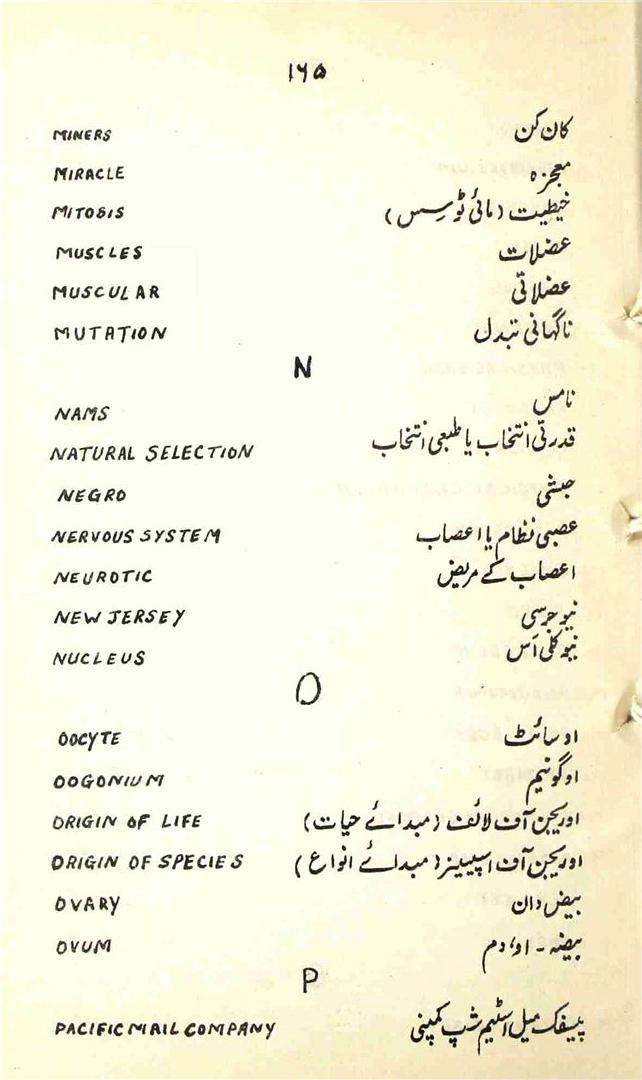 ۱۶۵
MINERS کان کن
MIRACLE معجزہ
MITOSIS خیطیت (مائی ٹوسس)
MUSCLES عضلات
MUSCULAR عضلاتی
MUTATION ناگہانی تبدل
N
NAMS نامس
NATURAL SELECTION قدرتی انتخاب یا طبعی انتخاب
NEGRO حبشی
NERVOUS SYSTEM عصبی نظام یا اعصاب
NEUROTIC اعصاب کے مریض
NEW JERSEY نیو جرسی
NUCLEUS نیوکلی اَس
O
OOCYTE اوسائٹ
OOGONIUM اوگونیم
ORIGIN OF LIFE اوریجن آف لائف (مبدائے حیات)
ORIGIN OF SPECIES اوریجن آف اسپیسیز (مبدائے انواع)
OVARY بیض دان
OVUM بیضہ - اووم
P
PACIFIC MAIL COMPANY پیسفک میل اسٹیم شپ کمپنی